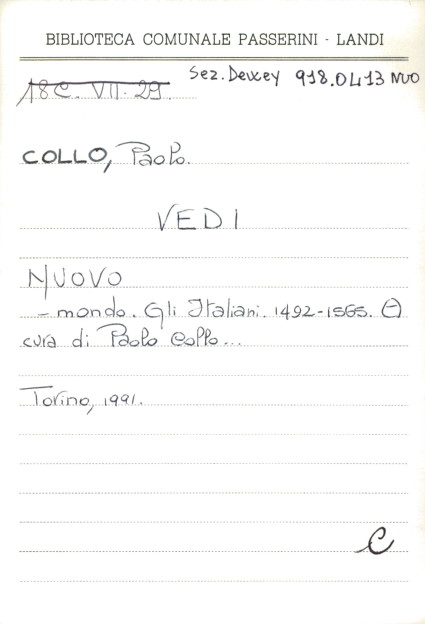 BIBLIOTECA COMUNALE PASSERINI - LANDI
Sez. Dewey 918.0413 NUO
18C. VII. 29.
COLLO, Paolo.
VEDI
NUOVO
- mondo. Gli Italiani. 1492-1565. A
cura di Paolo Collo...
Torino, 1991.
C